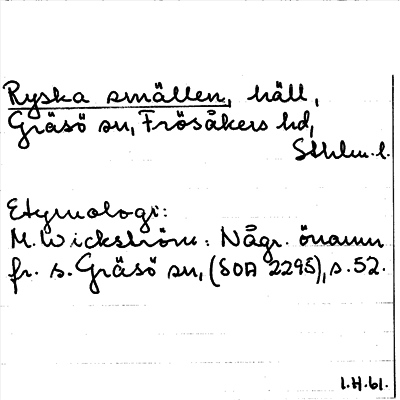 Ryska smällen, häll,
Gräsö sn, Frösåkers hd,
Sthlm.l.
Etymologi:
M. Wickström: Någr. önamn
fr. s. Gräsö sn, (SOA 2295), s. 52.
I.H.61.